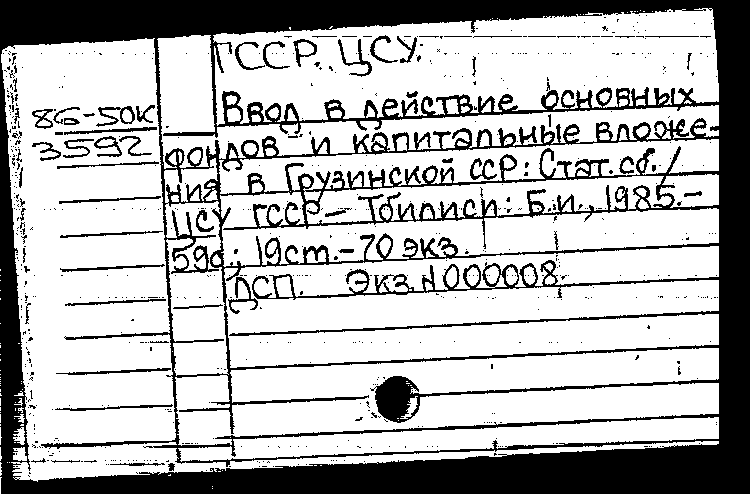 ГССР. ЦСУ.
86-50К
3592
Ввод в действие основных
фондов и капитальные вложе-
ния в Грузинской ССР: Стат. сб. /
ЦСУ ГССР. – Тбилиси: Б.и., 1985. –
59с.; 19см. – 70 экз.
ДСП. Экз. N 000008.